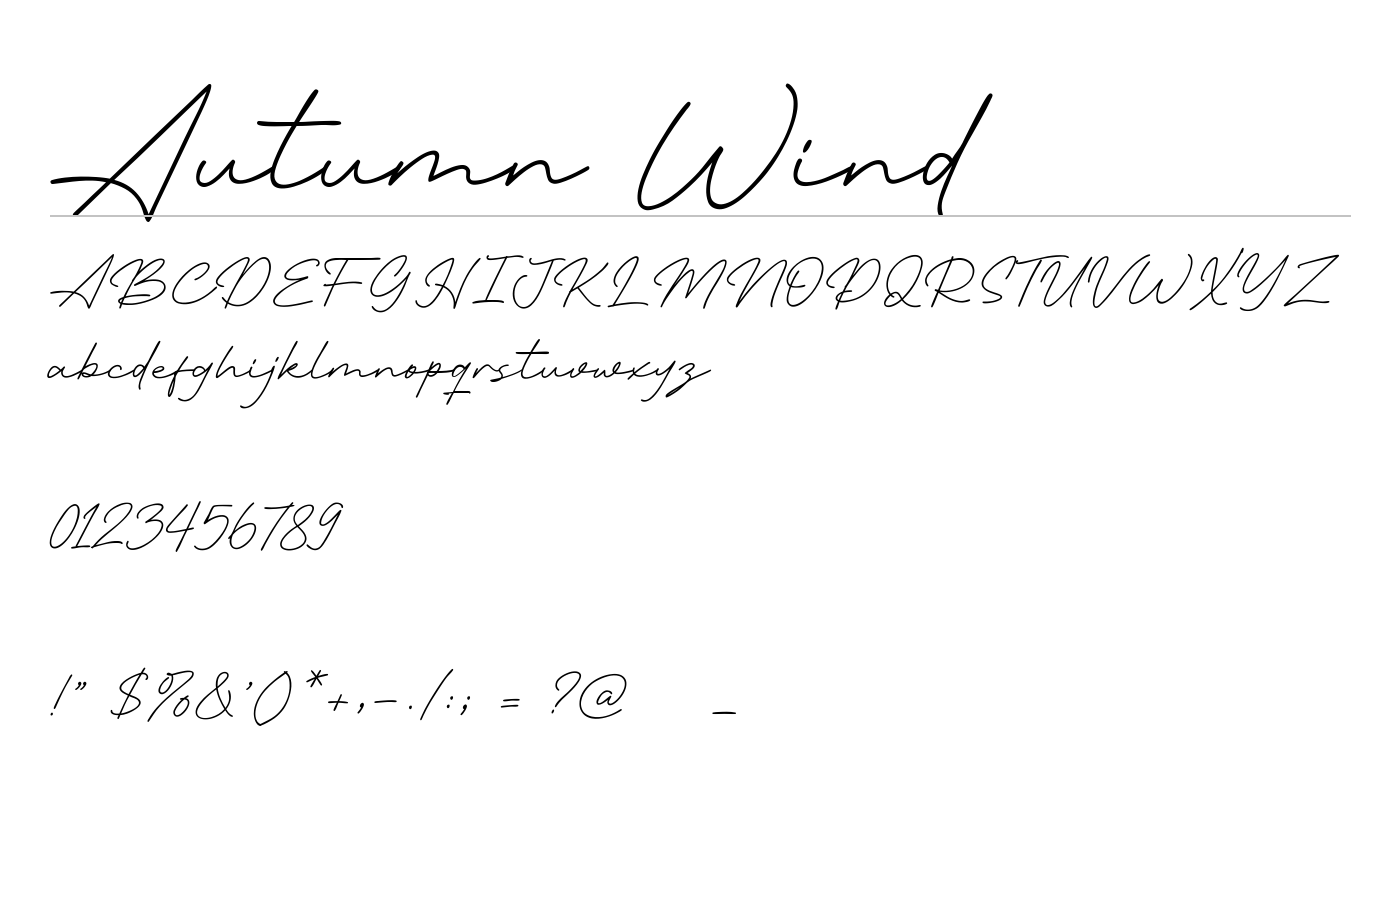 Autumn Wind
ABCDEFGHIJKLMNOPQRSTUVWXYZ
abcdefghijklmnopqrstuvwxyz
0123456789
!" $%&'()*+,-./:; = ?@ _